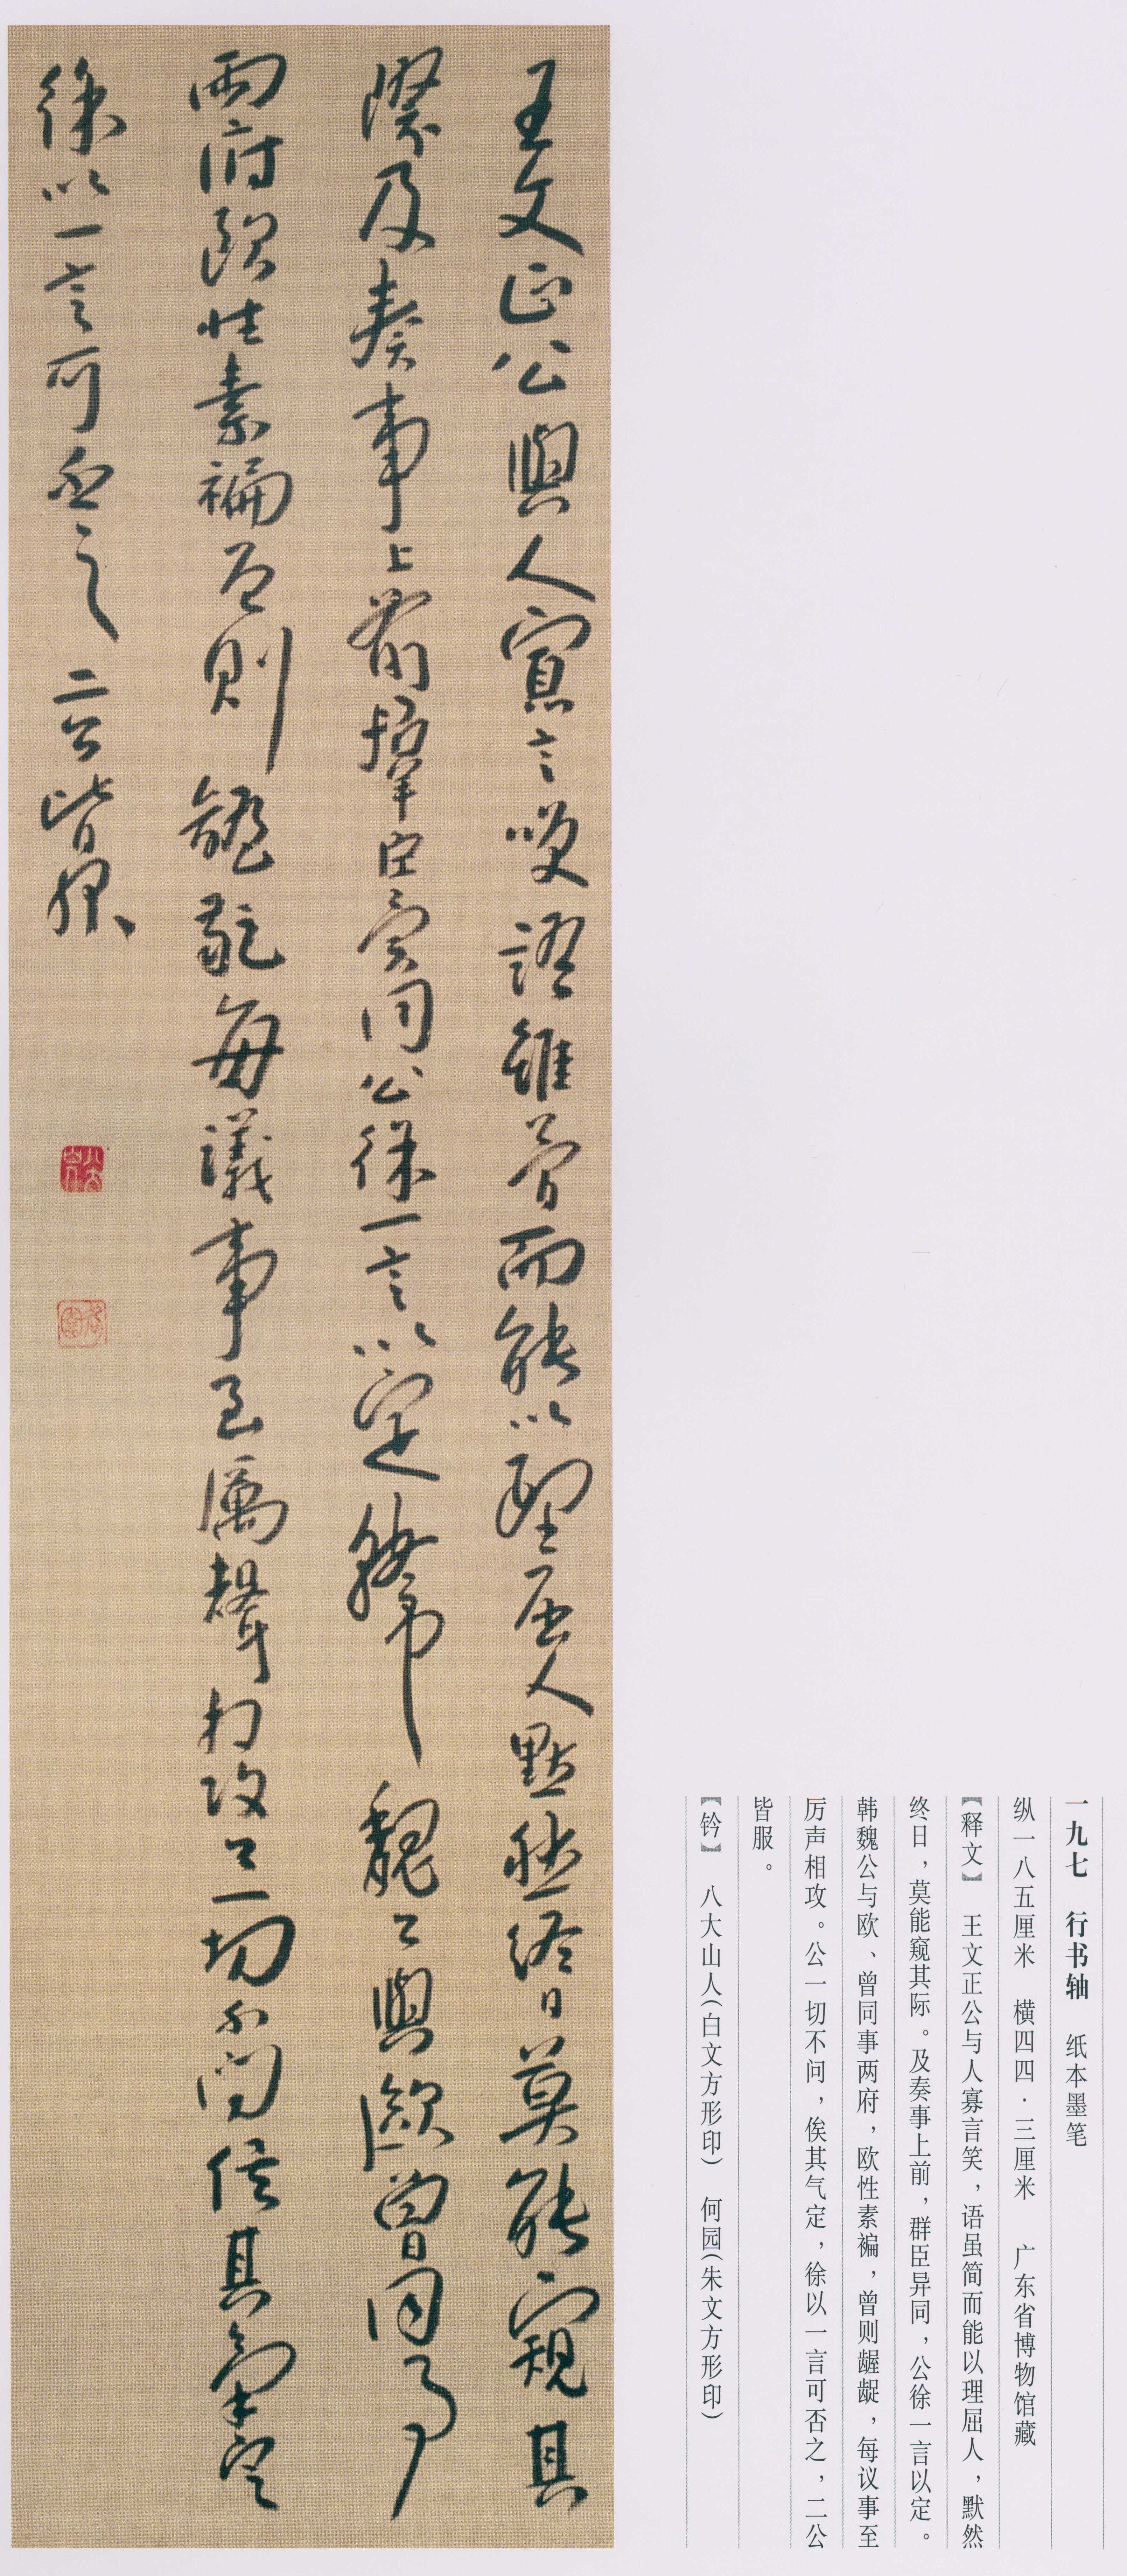 王文正公與人寡言哭語雖简而能以理屈人點然终日莫能窺其
際及奏事上前羣臣異同公徐一言以定韓魏公與歐曾同事
兩府歐性素褊曾則齷齪每議事至厲聲相攻公一切不問俟其氣定
徐以一言可否之二公皆服
一九七 行书轴 纸本墨笔
纵一八五厘米 横四四·三厘米 广东省博物馆藏
【释文】 王文正公与人寡言笑，语虽简而能以理屈人，默然
终日，莫能窥其际。及奏事上前，群臣异同，公徐一言以定。
韩魏公与欧、曾同事两府，欧性素褊，曾则龌龊，每议事至
厉声相攻。公一切不问，俟其气定，徐以一言可否之，二公
皆服。
【钤】 八大山人（白文方形印） 何园（朱文方形印）